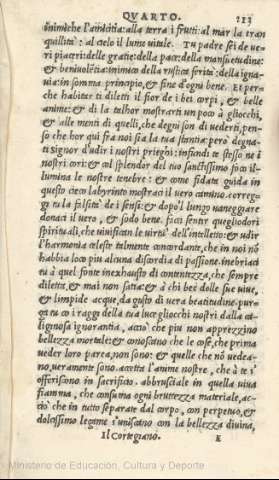 QVARTO. 223
inimiche l'amicitia: alla terra i frutti: al mar la tran
quillità: al cielo il lume vitale. Tu padre sei de ue-
ri piaceri: delle gratie: della pace: della mansuetudine:
& beniuolẽtia: inimico della rustica ferità: della igna-
uia: in somma principio, & fine d'ogni bene. Et per-
che habitar ti diletti il fior de i bei corpi, & belle
anime: & di la talhor mostrarti un poco à gliocchi,
& alle menti di quelli, che degni son di uederti, pen-
so che hor quì fra noi sia la tua stantia: però degna-
ti signor d'udir i nostri prieghi: infondi te stesso ne i
nostri cori: & col splendor del tuo santissimo foco il-
lumina le nostre tenebre: & come fidata guida in
questo cieco labyrinto mostraci il uero camino. correg-
gi tu la falsità de i sensi: & dopò'l lungo uaneggiare
donaci il uero, & sodo bene. facci sentir quegliodori
spirituali, che uiuifican le uirtù dell'intelletto: & udir
l'harmonia celeste talmente concordante, che in noi nõ
habbia loco piu alcuna discordia di passione. inebriaci
tu à quel fonte inexhausto di contentezza, che sempre
diletta, & mai non satia: & à chi bee delle sue uiue,
& limpide acque, da gusto di uera beatitudine. pur-
ga tu co i raggi della tua luce gliocchi nostri dalla ca-
liginosa ignorantia, acciò che piu non apprezzino
bellezza mortale: & conoscano che le cose, che prima
ueder loro parea, non sono: & quelle che nõ uedea-
no, ueramente sono. accetta l'anime nostre, che à te s'
offeriscono in sacrificio. abbrusciale in quella uiua
fiamma, che consuma ogni bruttezza materiale, ac-
ciò che in tutto separate dal corpo, con perpetuo, &
dolcissimo legame s'uniscano con la bellezza diuina,
Il Cortegiano. E
Ministerio de Educación, Cultura y Deporte